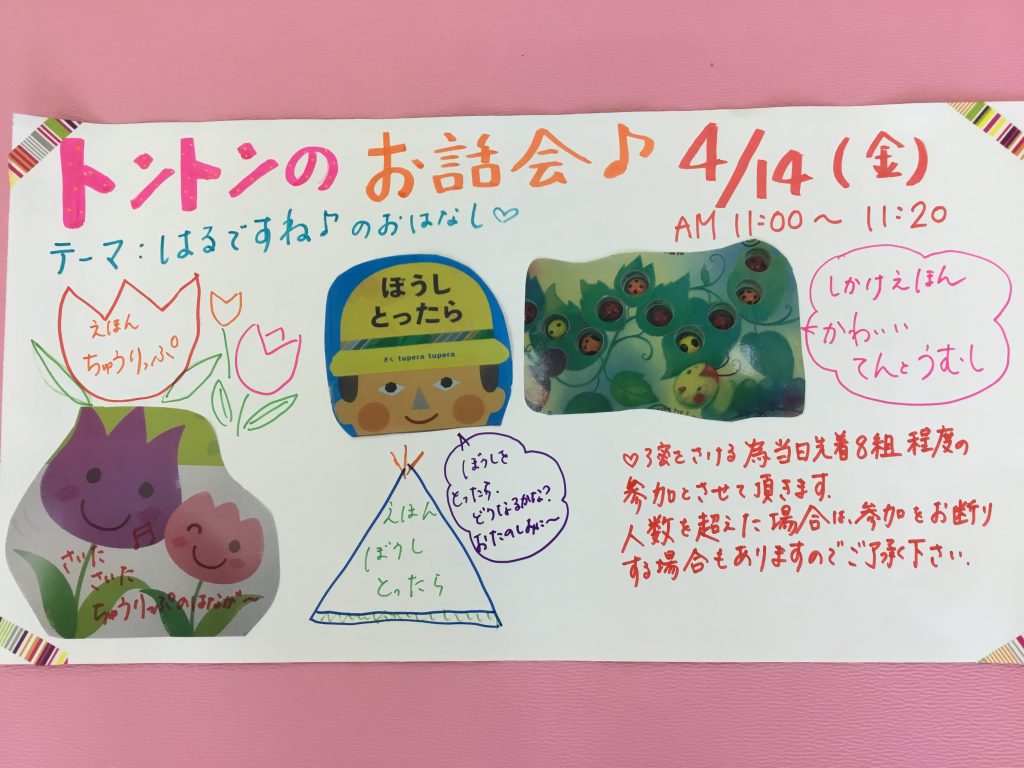 トントンの お話会♪ 4/14(金)
AM 11:00〜 11:20
テーマ:はるですね♪のおはなし♡
えほん
ちゅうりっぷ
さいた
さいた
ちゅうりっぷのはなが〜
ぼうし
とったら
さく tupera tupera
えほん
ぼうし
とったら
ぼうしを
とったら、
どうなるかな?
おたのしみに〜
しかけえほん
かわいい
てんとうむし
♡3密をさける為当日先着8組程度の
参加とさせて頂きます.
人数を超えた場合は、参加をお断り
する場合もありますのでご了承下さい.